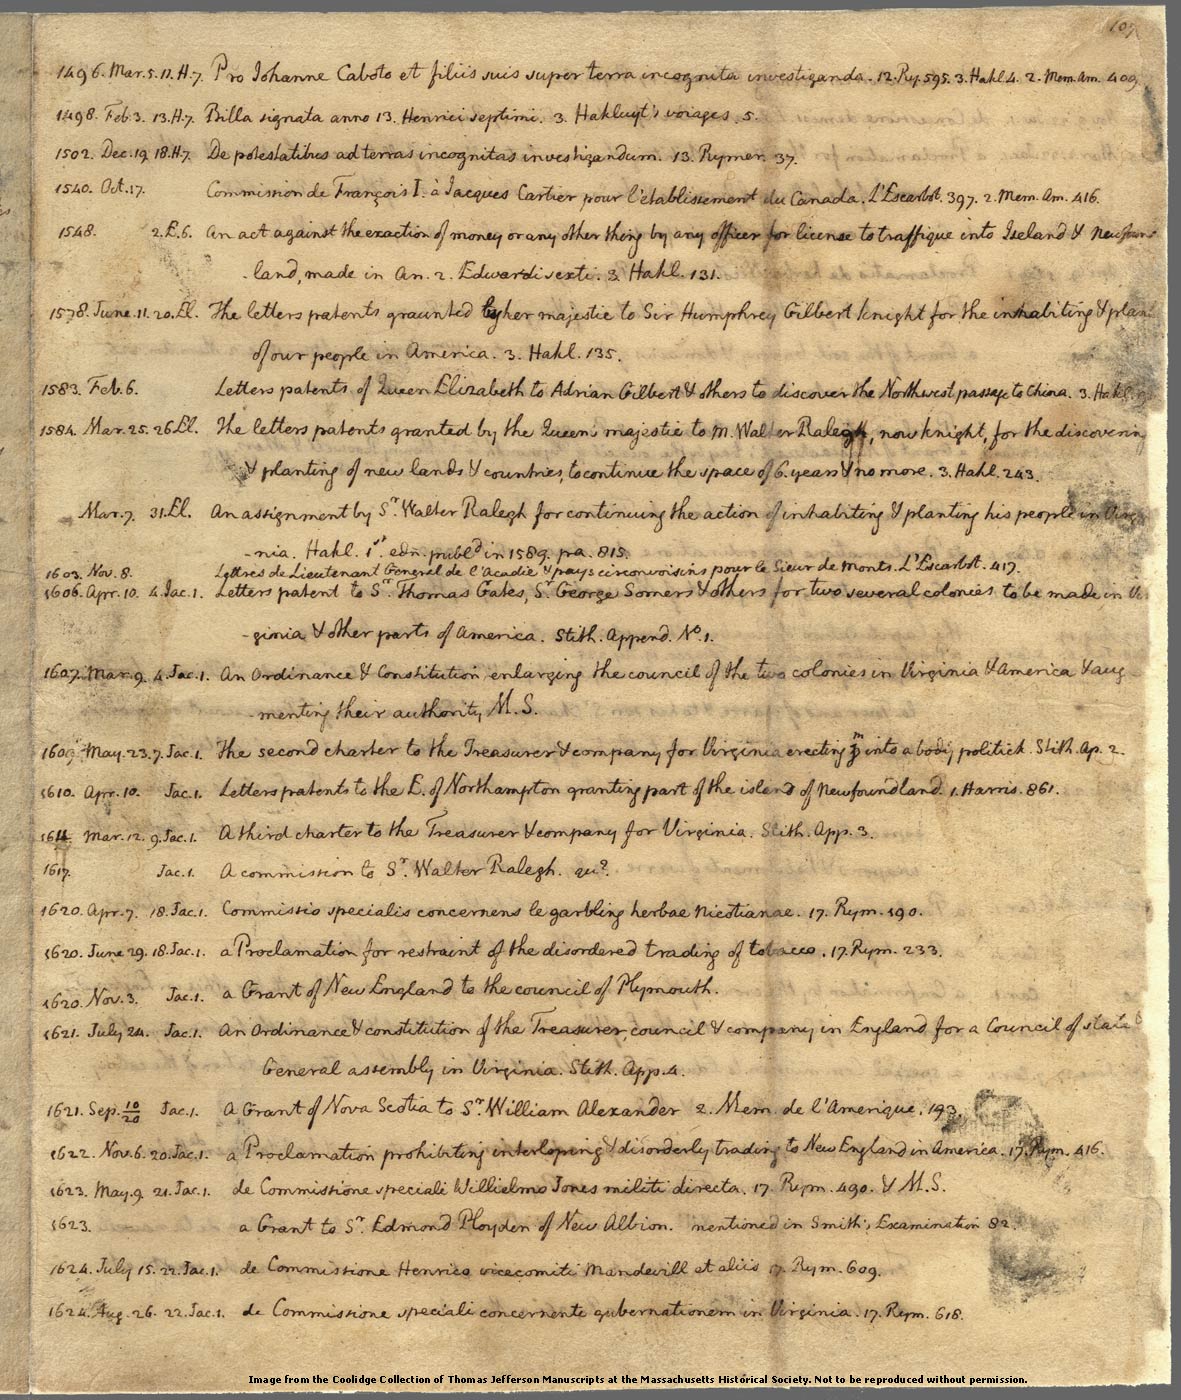 107
1496. Mar. 5. 11. H.7. Pro Johanne Caboto et filiis suis super terra incognita investiganda. 12. Ry. 595. 3. Hakl. 4. 2. Mem. Am. 409.
1498. Feb. 3. 13. H.7. Billa signata anno 13. Henrici septimi. 3. Hakluyt's voiages. 5.
1502. Dec. 19. 18. H.7. De potestatibus ad terras incognitas investigandum. 13. Rymer. 37.
1540. Oct. 17. Commission de François I. à Jacques Cartier pour l'établissement du Canada. L'Escarbot. 397. 2. Mem. Am. 416.
1548. 2. E.6. An act against the exaction of money or any other thing by any officer for license to traffique into Iseland & Newfound
-land, made in An. 2. Edwardi sexti. 3. Hakl. 131.
1578. June. 11. 20. El. The letters patents graunted by her majestie to Sir Humphrey Gilbert knight for the inhabiting & plant
of our people in America. 3. Hakl. 135.
1583. Feb. 6. Letters patents of Queen Elizabeth to Adrian Gilbert & others to discover the Northwest passage to China. 3. Hakl.
1584. Mar. 25. 26. El. The letters patents granted by the Queen's majestie to M. Walter Ralegh, now knight, for the discovering
& planting of new lands & countries, to continue the space of 6. years & no more. 3. Hakl. 243.
Mar. 7. 31. El. An assignment by Sr. Walter Ralegh for continuing the action of inhabiting & planting his people in Virgi
-nia. Hakl. 1st. edn. publd in 1589. pa. 815.
1603. Nov. 8. Lettres de Lieutenant General de l'Acadie & pays circonvoisins pour le Sieur de Monts. L'Escarbot. 417.
1606. Apr. 10. 4. Jac. 1. Letters patent to Sr. Thomas Gates, Sr. George Somers & others for two several colonies to be made in Vir
-ginia & other parts of America. Stith. Append. No. 1.
1607. Mar. 9. 4. Jac. 1. An Ordinance & Constitution enlarging the council of the two colonies in Virginia & America & aug
-menting their authority M.S.
1609. May. 23. 7. Jac. 1. The second charter to the Treasurer & company for Virginia erecting ym into a body politick. Stith. Ap. 2.
1610. Apr. 10. Jac. 1. Letters patents to the E. of Northampton granting part of the island of Newfoundland. 1. Harris. 861.
1611. Mar. 12. 9. Jac. 1. A third charter to the Treasurer & company for Virginia. Stith. App. 3.
1617. Jac. 1. A commission to Sr. Walter Ralegh. qu?
1620. Apr. 7. 18. Jac. 1. Commissio specialis concernens le garbling herbae Nicotianae. 17. Rym. 190.
1620. June 29. 18. Jac. 1. a Proclamation for restraint of the disordered trading of tobacco. 17. Rym. 233.
1620. Nov. 3. Jac. 1. a Grant of New England to the council of Plymouth.
1621. July 24. Jac. 1. An Ordinance & constitution of the Treasurer, council & company in England for a Council of state &
General assembly in Virginia. Stith. App. 4.
1621. Sep. 10/20 Jac. 1. A Grant of Nova Scotia to Sr. William Alexander 2. Mem. de l'Amerique. 193.
1622. Nov. 6. 20. Jac. 1. a Proclamation prohibiting interloping & disorderly trading to New England in America. 17. Rym. 416.
1623. May. 9. 21. Jac. 1. de Commissione speciali Willielmo Jones militi directa. 17. Rym. 490. & M.S.
1623. a Grant to Sr. Edmond Ployden of New Albion. mentioned in Smith's Examination 82.
1624. July 15. 22. Jac. 1. de Commissione Henrico vicecomiti Mandevill et aliis 17. Rym. 609.
1624. Aug. 26. 22. Jac. 1. de Commissione speciali concernente gubernationem in Virginia. 17. Rym. 618.
Image from the Coolidge Collection of Thomas Jefferson Manuscripts at the Massachusetts Historical Society. Not to be reproduced without permission.